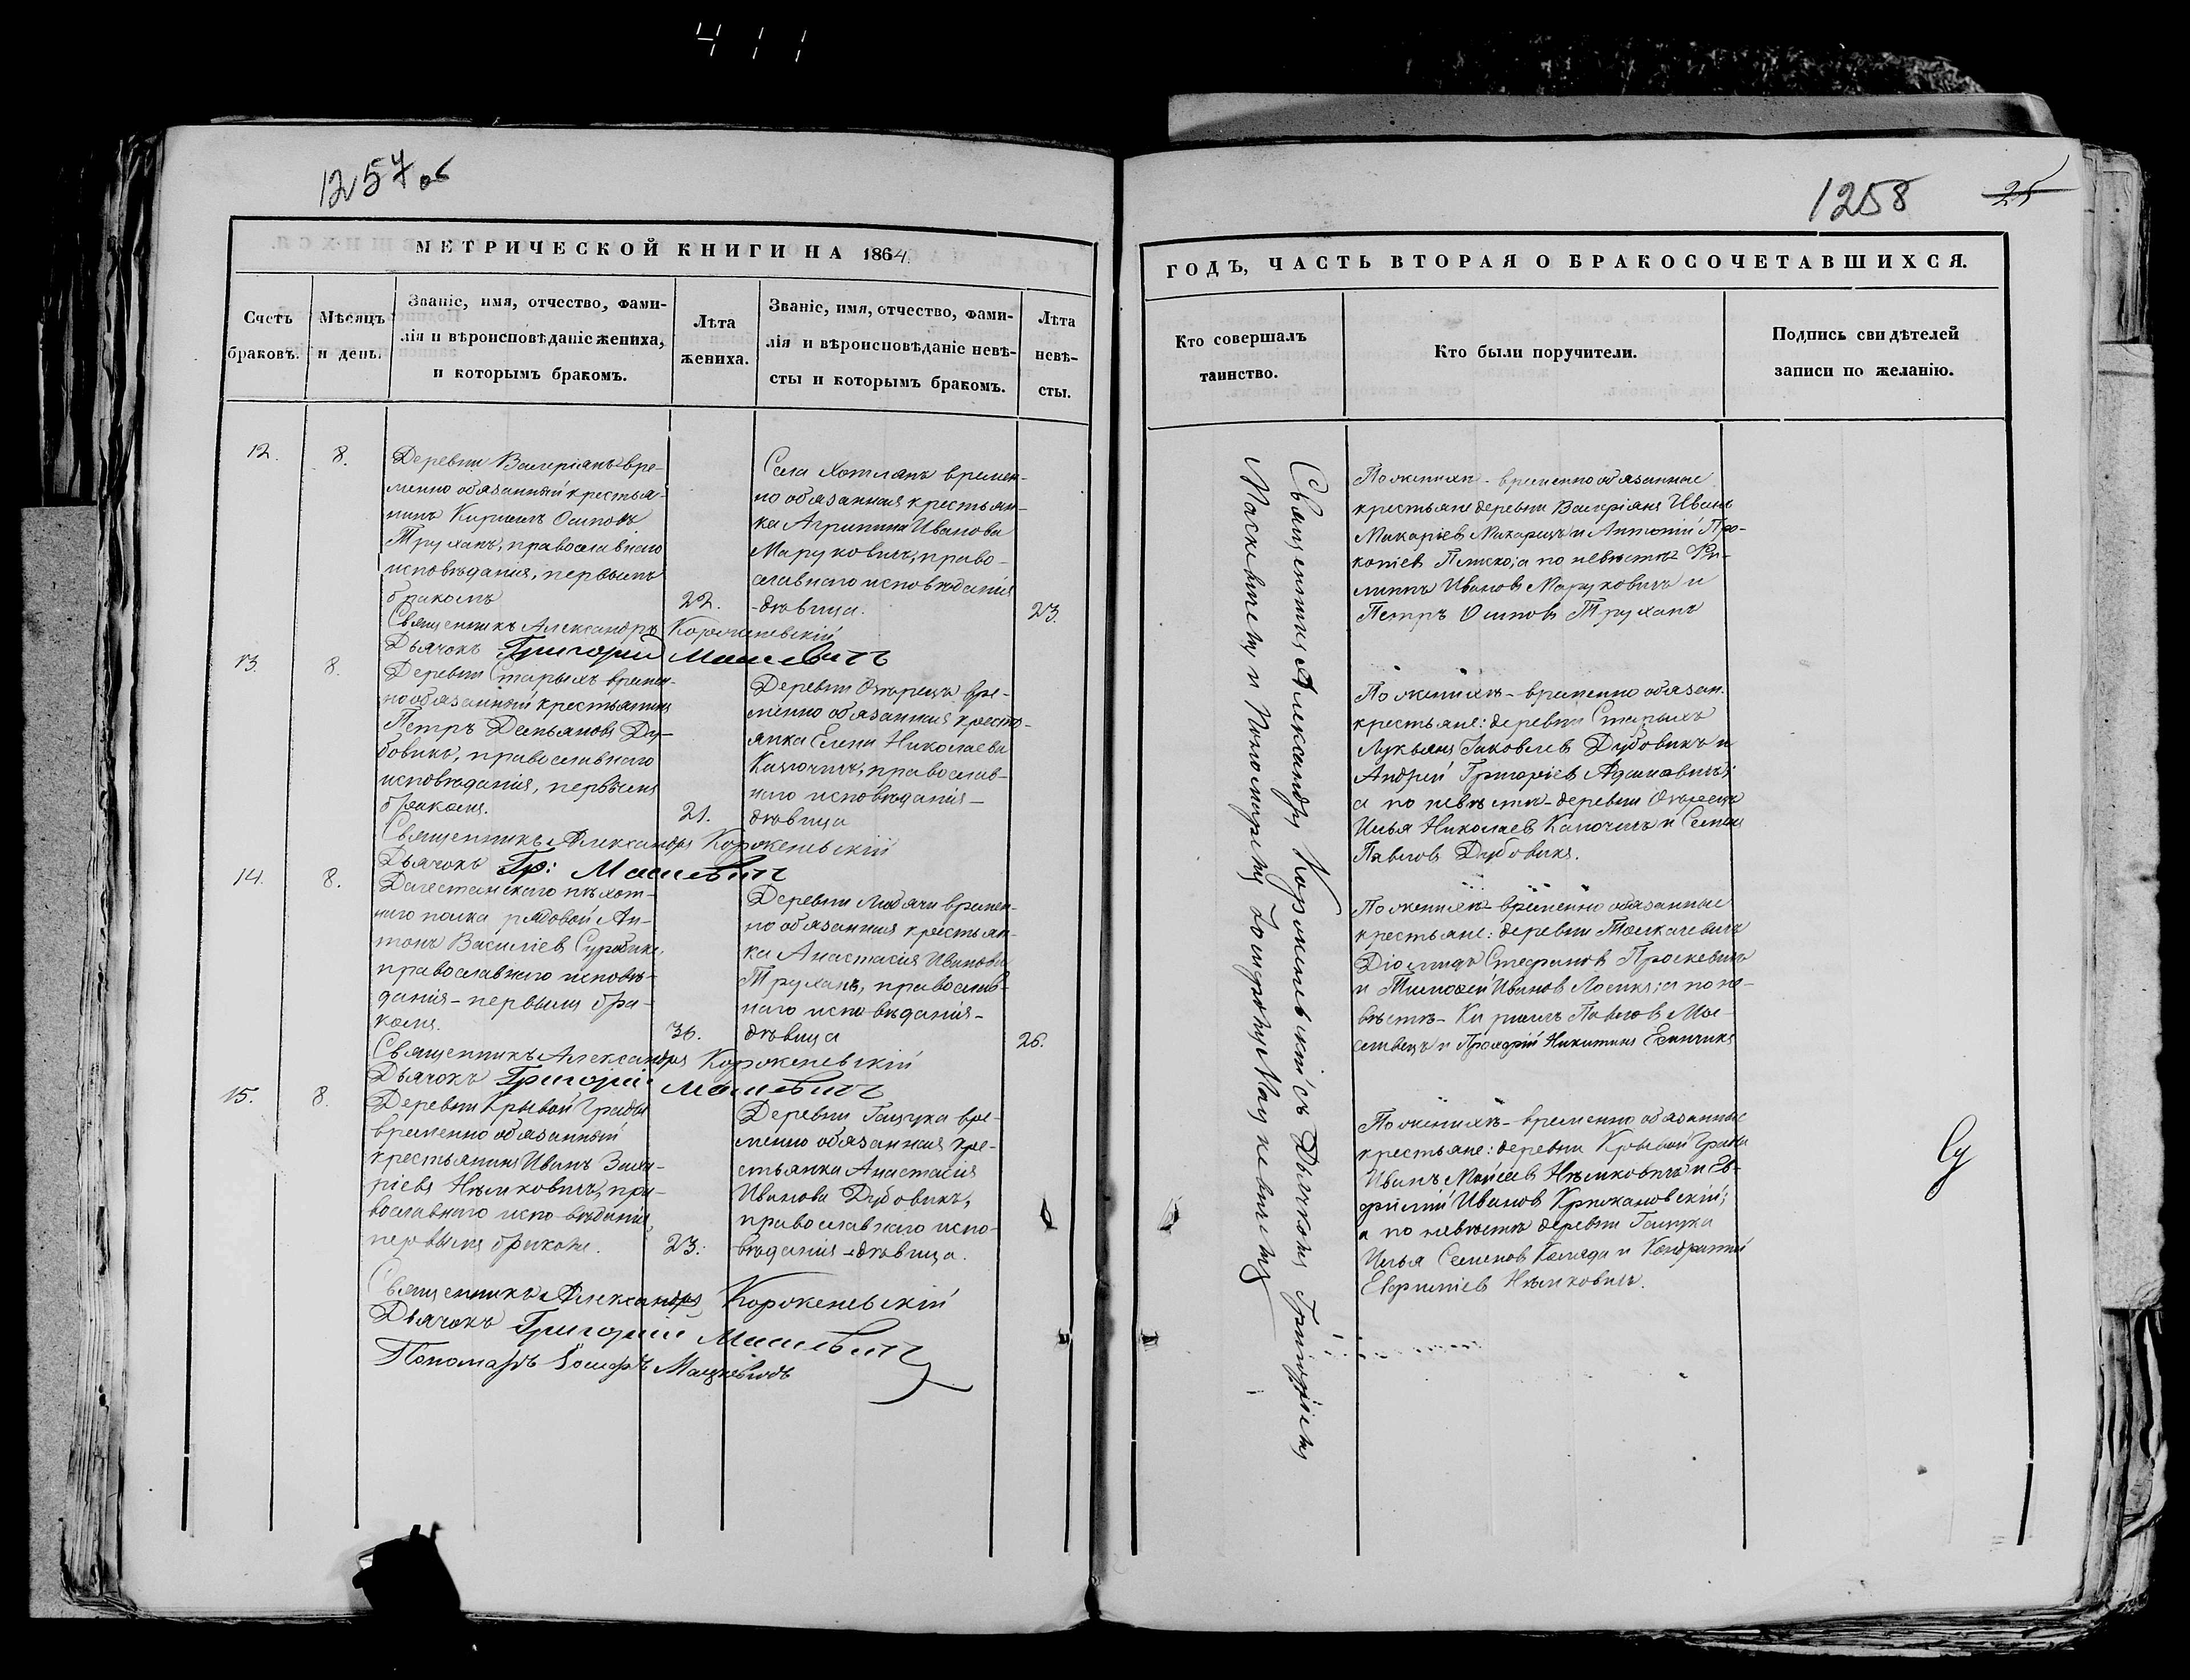 411
1257 об
МЕТРИЧЕСКОЙ КНИГИ НА 1864.
Счетъ браковъ.
Мѣсяцъ и день.
Званіе, имя, отчество, фами-
лія и вѣроисповѣданіе жениха,
и которымъ бракомъ.
Лѣта
жениха.
Званіе, имя, отчество, фами-
лія и вѣроисповѣданіе невѣ-
сты и которымъ бракомъ.
Лѣта
невѣ-
сты.
12.
8.
Деревни Валеріанъ вре-
менно обязанный крестья-
нинъ Кириллъ Осиповъ
Труханъ, православнаго
исповѣданія, первымъ
бракомъ
22.
Села Хотлянъ времен-
но обязанная крестьян-
ка Агрипина Иванова
Маруковичъ, право-
славнаго исповѣданія
-дѣвица.
23.
Священникъ Александръ
Дьячокъ Григорій
13.
8.
Деревни Старыхъ времен-
но обязанный крестьянинъ
Петръ Демьяновъ Ду-
бовикъ, православнаго
исповѣданія, первымъ
бракомъ.
21.
Деревни вре-
менно обязанная кресть-
янка Елена Николаева
православ-
наго исповѣданія-
дѣвица
Священникъ Александръ
Дьячокъ Гр:
14.
8.
Дагестанскаго пѣхот-
наго полка рядовой Ан-
тонъ Василіев
православнаго исповѣ-
данія - первымъ бра-
комъ.
36.
Деревни времен-
но обязанная крестьян-
ка Анастасія Иванова
Труханъ, православ-
наго исповѣданія-
дѣвица
26.
Священникъ Александръ
Дьячокъ Григорій
15.
8.
Деревни Кривой Гряды
временно обязанный
крестьянинъ Иванъ Заха-
ріевъ Нѣмковичъ, пра-
вославнаго исповѣданія,
первымъ бракомъ.
23.
Деревни вре-
менно обязанная кре-
стьянка Анастасія
Иванова Дубовикъ,
православнаго испо-
вѣданія - дѣвица.
Священникъ Александръ
Дьячокъ Григорій
Пономарь Іосифъ Мацкевичъ
1258
25
ГОДЪ, ЧАСТЬ ВТОРАЯ О БРАКОСОЧЕТАВШИХСЯ.
Кто совершалъ
таинство.
Кто были поручители.
Подпись свидѣтелей
записи по желанію.
Священникъ Александръ съ Дьячкомъ Григоріемъ
и Пономаремъ Іосифомъ Мацкевичемъ
По женихѣ - временно обязанные
крестьяне деревни Валеріянъ Иванъ
Макаріев и Антоній Про-
копіев а по невѣстѣ Фи-
липпъ Иванов Маруковичъ и
Петръ Осипов Труханъ
По женихѣ - временно обязан.
крестьяне: деревни Старыхъ
Лукьянъ Яковлев Дубовикъ и
Андрей Григоріев Адамовичъ;
а по невѣстѣ - деревни
Илья Николаев и Семенъ
Павлов Дубовикъ.
По женихѣ - временно обязанные
крестьяне: деревни
Діомидъ Стефанов
и Тимофей Иванов а по не-
вѣстѣ - Кириллъ Павлов
и Никитинъ
По женихѣ - временно обязанные
крестьяне: деревни Кривой Гряды
Иванъ Моисеев Нѣмковичъ и Ев-
фимій Иванов Крижановскій;
а по невѣстѣ деревни
Илья Семенов Коляда и Кондратій
Евфиміев Нѣмковичъ.